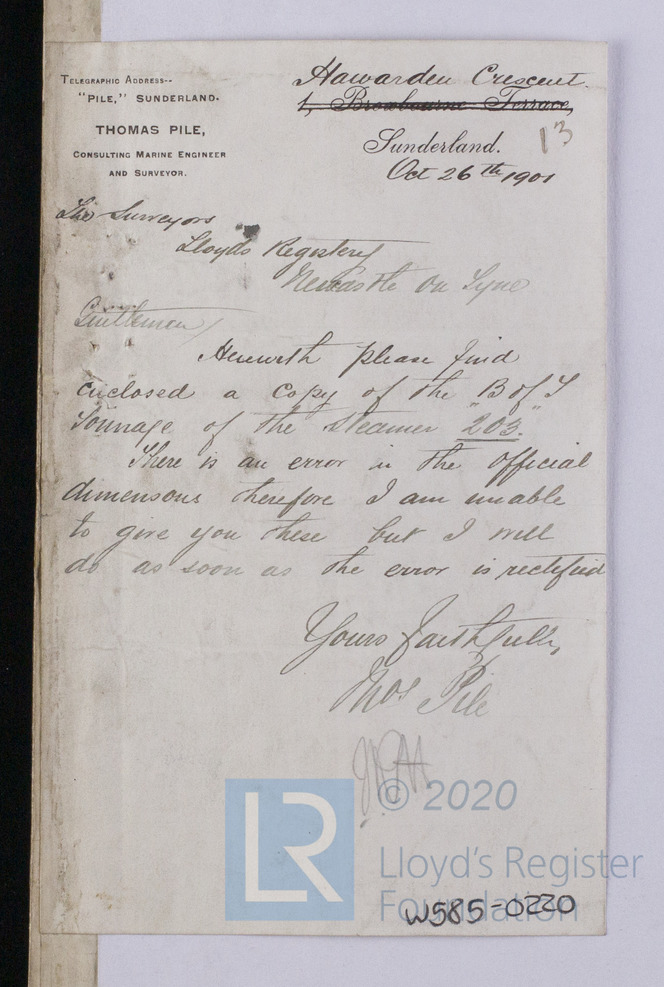 TELEGRAPHIC ADDRESS--
"PILE," SUNDERLAND.
THOMAS PILE,
CONSULTING MARINE ENGINEER
AND SURVEYOR.
Hawarden Crescent.
1, Broxbourne Terrace,
Sunderland.
13
Oct 26th 1901
The Surveyors
Lloyds Registery
Newcastle on Tyne
Gentlemen
Herewith please find
enclosed a copy of the B of T
Tonnage of the Steamer "203."
There is an error in the official
dimensons therefore I am unable
to give you these but I will
do as soon as the error is rectified
Yours faithfully
Thos Pile
© 2020
LR
Lloyd's Register
Foundation
W585-0220